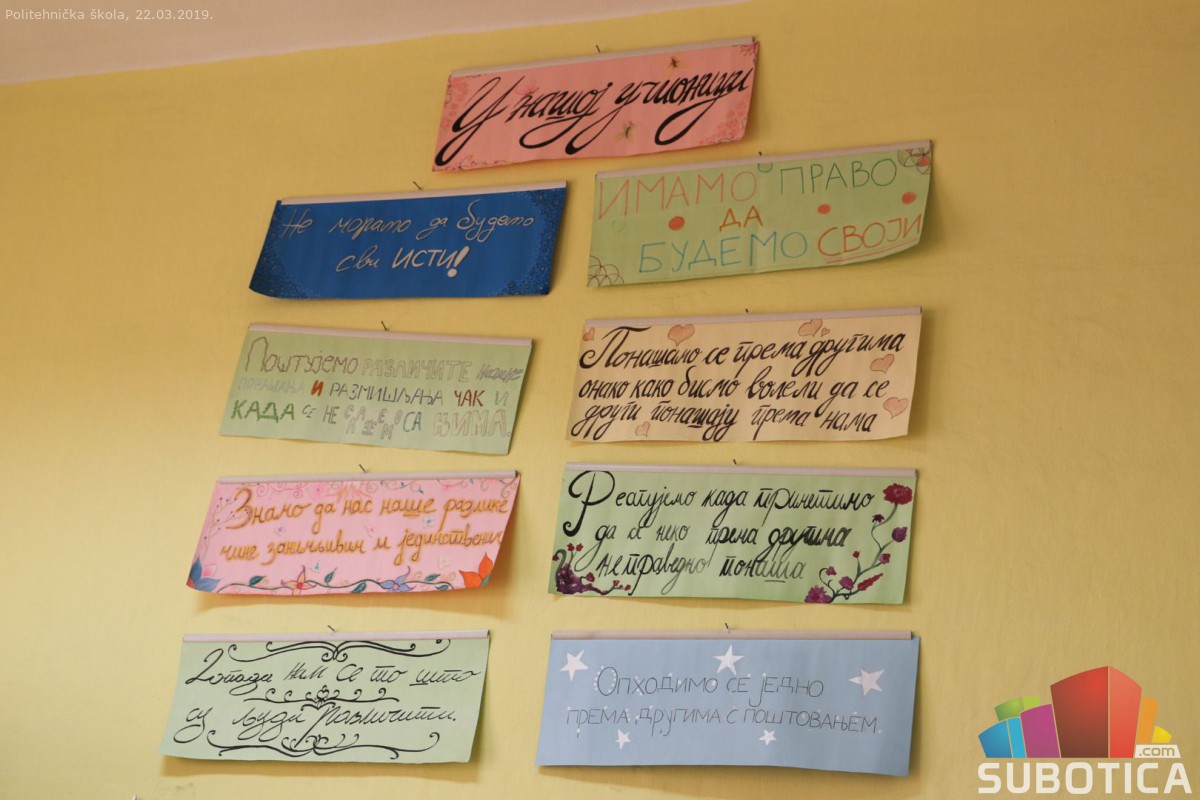 Politehnička škola, 22.03.2019.
У нашој учионици
Не морамо да будемо
сви ИСТИ!
ИМАМО ПРАВО
ДА
БУДЕМО СВОЈИ
ПОШТУЈЕМО РАЗЛИЧИТЕ
ПОНАШАЊА И РАЗМИШЉАЊА ЧАК И
КАДА СЕ НЕ СЛАЖЕМО СА ЊИМА.
Понашамо се према другима
онако како бисмо волели да се
други понашају према нама
Знамо да нас наше разлике
чине занимљивим и јединственим
Реагујемо када приметимо
да се неко према другима
неправедно понаша
Допада нам се то што
су људи различити.
ОПХОДИМО СЕ ЈЕДНО
ПРЕМА ДРУГИМА С ПОШТОВАЊЕМ
.com
SUBOTICA